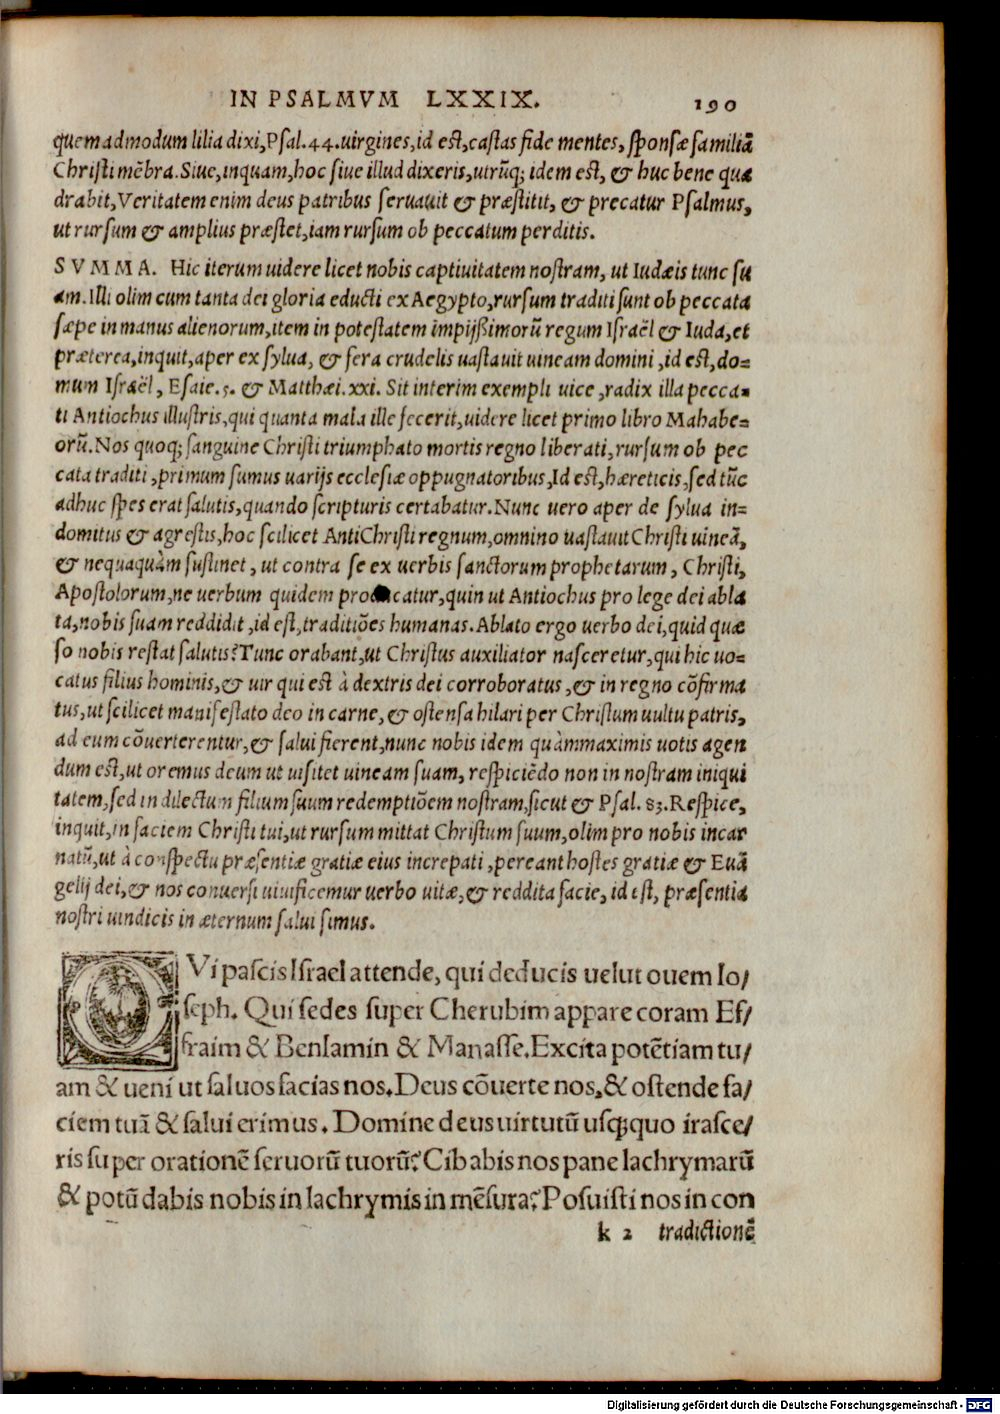 IN PSALMVM LXXIX. 190
quemadmodum lilia dixi, Psal. 44. uirgines, id est, castas fide mentes, sponsæ familiã
Christi mẽbra. Siue, inquam, hoc siue illud dixeris, utrũq; idem est, & huc bene qua
drabit, Veritatem enim deus patribus seruauit & præstitit, & precatur Psalmus,
ut rursum & amplius præstet, iam rursum ob peccatum perditis.
SVMMA. Hic iterum uidere licet nobis captiuitatem nostram, ut Iudæis tunc su
am. Illi olim cum tanta dei gloria educti ex Aegypto, rursum traditi sunt ob peccata
sæpe in manus alienorum, item in potestatem impijßimorũ regum Israël & Iuda, et
præterea, inquit, aper ex sylua, & fera crudelis uastauit uineam domini, id est, do=
mum Israël, Esaie. 5. & Matthæi. xxi. Sit interim exempli uice, radix illa pecca=
ti Antiochus illustris, qui quanta mala ille fecerit, uidere licet primo libro Mahabe=
orũ. Nos quoq; sanguine Christi triumphato mortis regno liberati, rursum ob pec
cata traditi, primum sumus uarijs ecclesiæ oppugnatoribus, Id est, hæreticis, sed tũc
adhuc spes erat salutis, quando scripturis certabatur. Nunc uero aper de sylua in=
domitus & agrestis, hoc scilicet AntiChristi regnum, omnino uastauit Christi uineã,
& nequaquàm sustinet, ut contra se ex uerbis sanctorum prophetarum, Christi,
Apostolorum, ne uerbum quidem producatur, quin ut Antiochus pro lege dei abla
ta, nobis suam reddidit, id est, traditiões humanas. Ablato ergo uerbo dei, quid quæ
so nobis restat salutis? Tunc orabant, ut Christus auxiliator nasceretur, qui hic uo=
catus filius hominis, & uir qui est à dextris dei corroboratus, & in regno cõfirma
tus, ut scilicet manifestato deo in carne, & ostensa hilari per Christum uultu patris,
ad eum cõuerterentur, & salui fierent, nunc nobis idem quàmmaximis uotis agen
dum est, ut oremus deum ut uisitet uineam suam, respiciẽdo non in nostram iniqui
tatem, sed in dilectum filium suum redemptiõem nostram, sicut & Psal. 83. Respice,
inquit, in faciem Christi tui, ut rursum mittat Christum suum, olim pro nobis incar
natũ, ut à conspectu præsentiæ gratiæ eius increpati, pereant hostes gratiæ & Euã
gelij dei, & nos conuersi uiuificemur uerbo uitæ, & reddita facie, id est, præsentia
nostri uindicis in æternum salui simus.
QVi pascis Israel attende, qui deducis uelut ouem Io/
seph. Qui sedes super Cherubim appare coram Ef/
fraim & BenIamin & Manasse. Excita potẽtiam tu/
am & ueni ut saluos facias nos. Deus cõuerte nos, & ostende fa/
ciem tuã & salui erimus. Domine deus uirtutũ usq;quo irasce/
ris super orationẽ seruorũ tuorũ? Cibabis nos pane lachrymarũ
& potũ dabis nobis in lachrymis in mẽsura? Posuisti nos in con
k 2 tradictionẽ
Digitalisierung gefördert durch die Deutsche Forschungsgemeinschaft - DFG